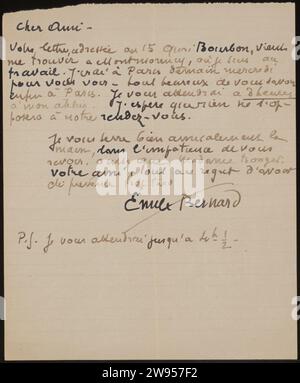 Cher Ami -
Votre lettre adressée au 15 Quai Bourbon, vient
me trouver à Montmorency, où je suis au
travail. J'irai à Paris demain mercredi
pour vous voir - tout heureux de vous savoir
enfin à Paris. Je vous attendrai à 3 heures
à mon atelier. J'espère que rien ne s'op-
posera à notre rendez-vous.
Je vous serre bien amicalement la
main, dans l'impatience de vous
revoir.
Votre ami, plein du regret d'avoir
Émile Bernard
P.S. Je vous attendrai jusqu'à 4h 1/2 -
alamy
Image ID: 2W957F2
www.alamy.com